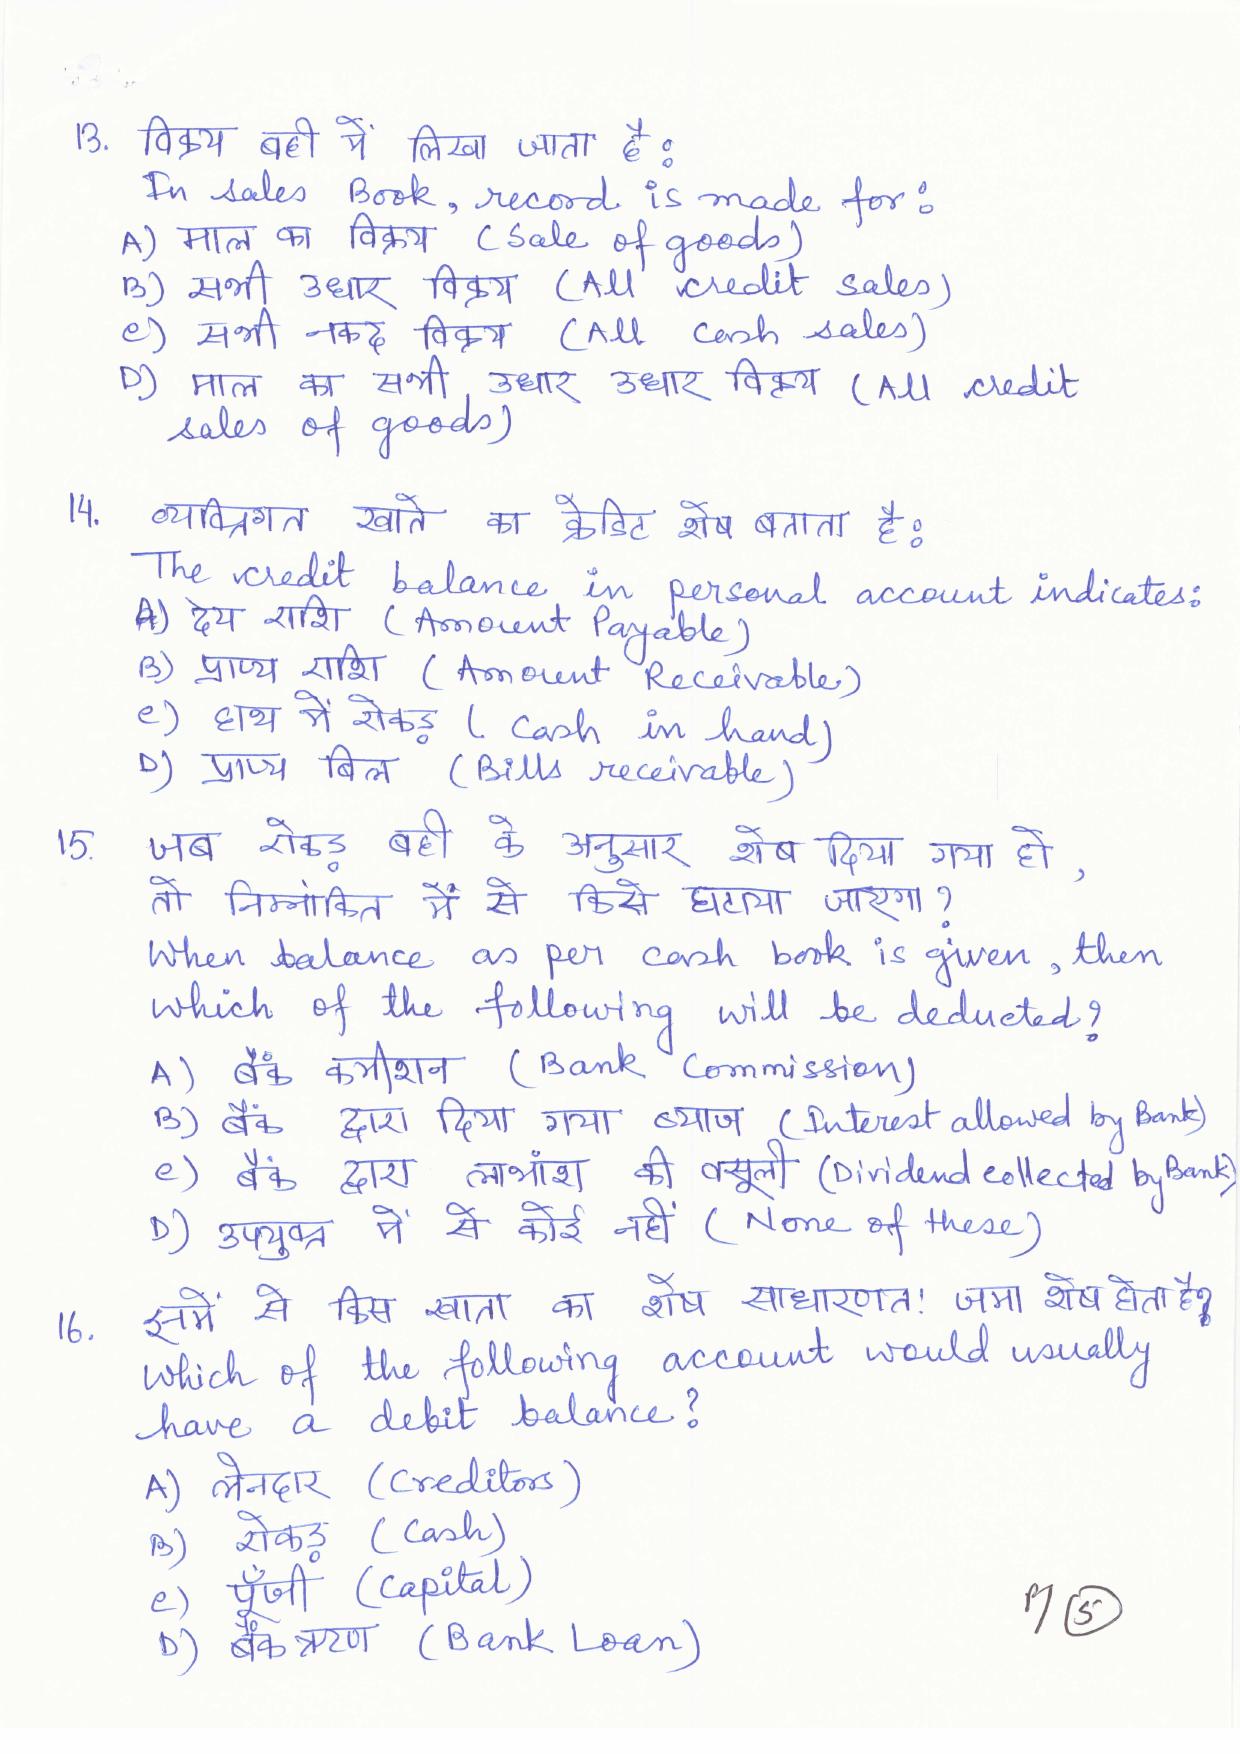 13. विक्रय बही में लिखा जाता है:
In sales Book, record is made for:
A) माल का विक्रय (Sale of goods)
B) सभी उधार विक्रय (All credit sales)
C) सभी नकद विक्रय (All cash sales)
D) माल का सभी उधार उधार विक्रय (All credit
sales of goods)
14. व्यक्तिगत खाते का क्रेडिट शेष बताता है:
The credit balance in personal account indicates:
A) देय राशि (Amount Payable)
B) प्राप्य राशि (Amount Receivable)
C) हाथ में रोकड़ (Cash in hand)
D) प्राप्य बिल (Bills receivable)
15. जब रोकड़ बही के अनुसार शेष दिया गया हो,
तो निम्नांकित में से किसे घटाया जाएगा?
When balance as per cash book is given, then
which of the following will be deducted?
A) बैंक कमीशन (Bank Commission)
B) बैंक द्वारा दिया गया ब्याज (Interest allowed by Bank)
C) बैंक द्वारा लाभाँश की वसूली (Dividend collected by Bank)
D) उपयुक्त में से कोई नहीं (None of these)
16. इनमें से किस खाता का शेष साधारणत! जमा शेष होता है?
Which of the following account would usually
have a debit balance?
A) लेनदार (Creditors)
B) रोकड़ (Cash)
C) पूँजी (Capital)
D) बैंक ऋण (Bank Loan)
5